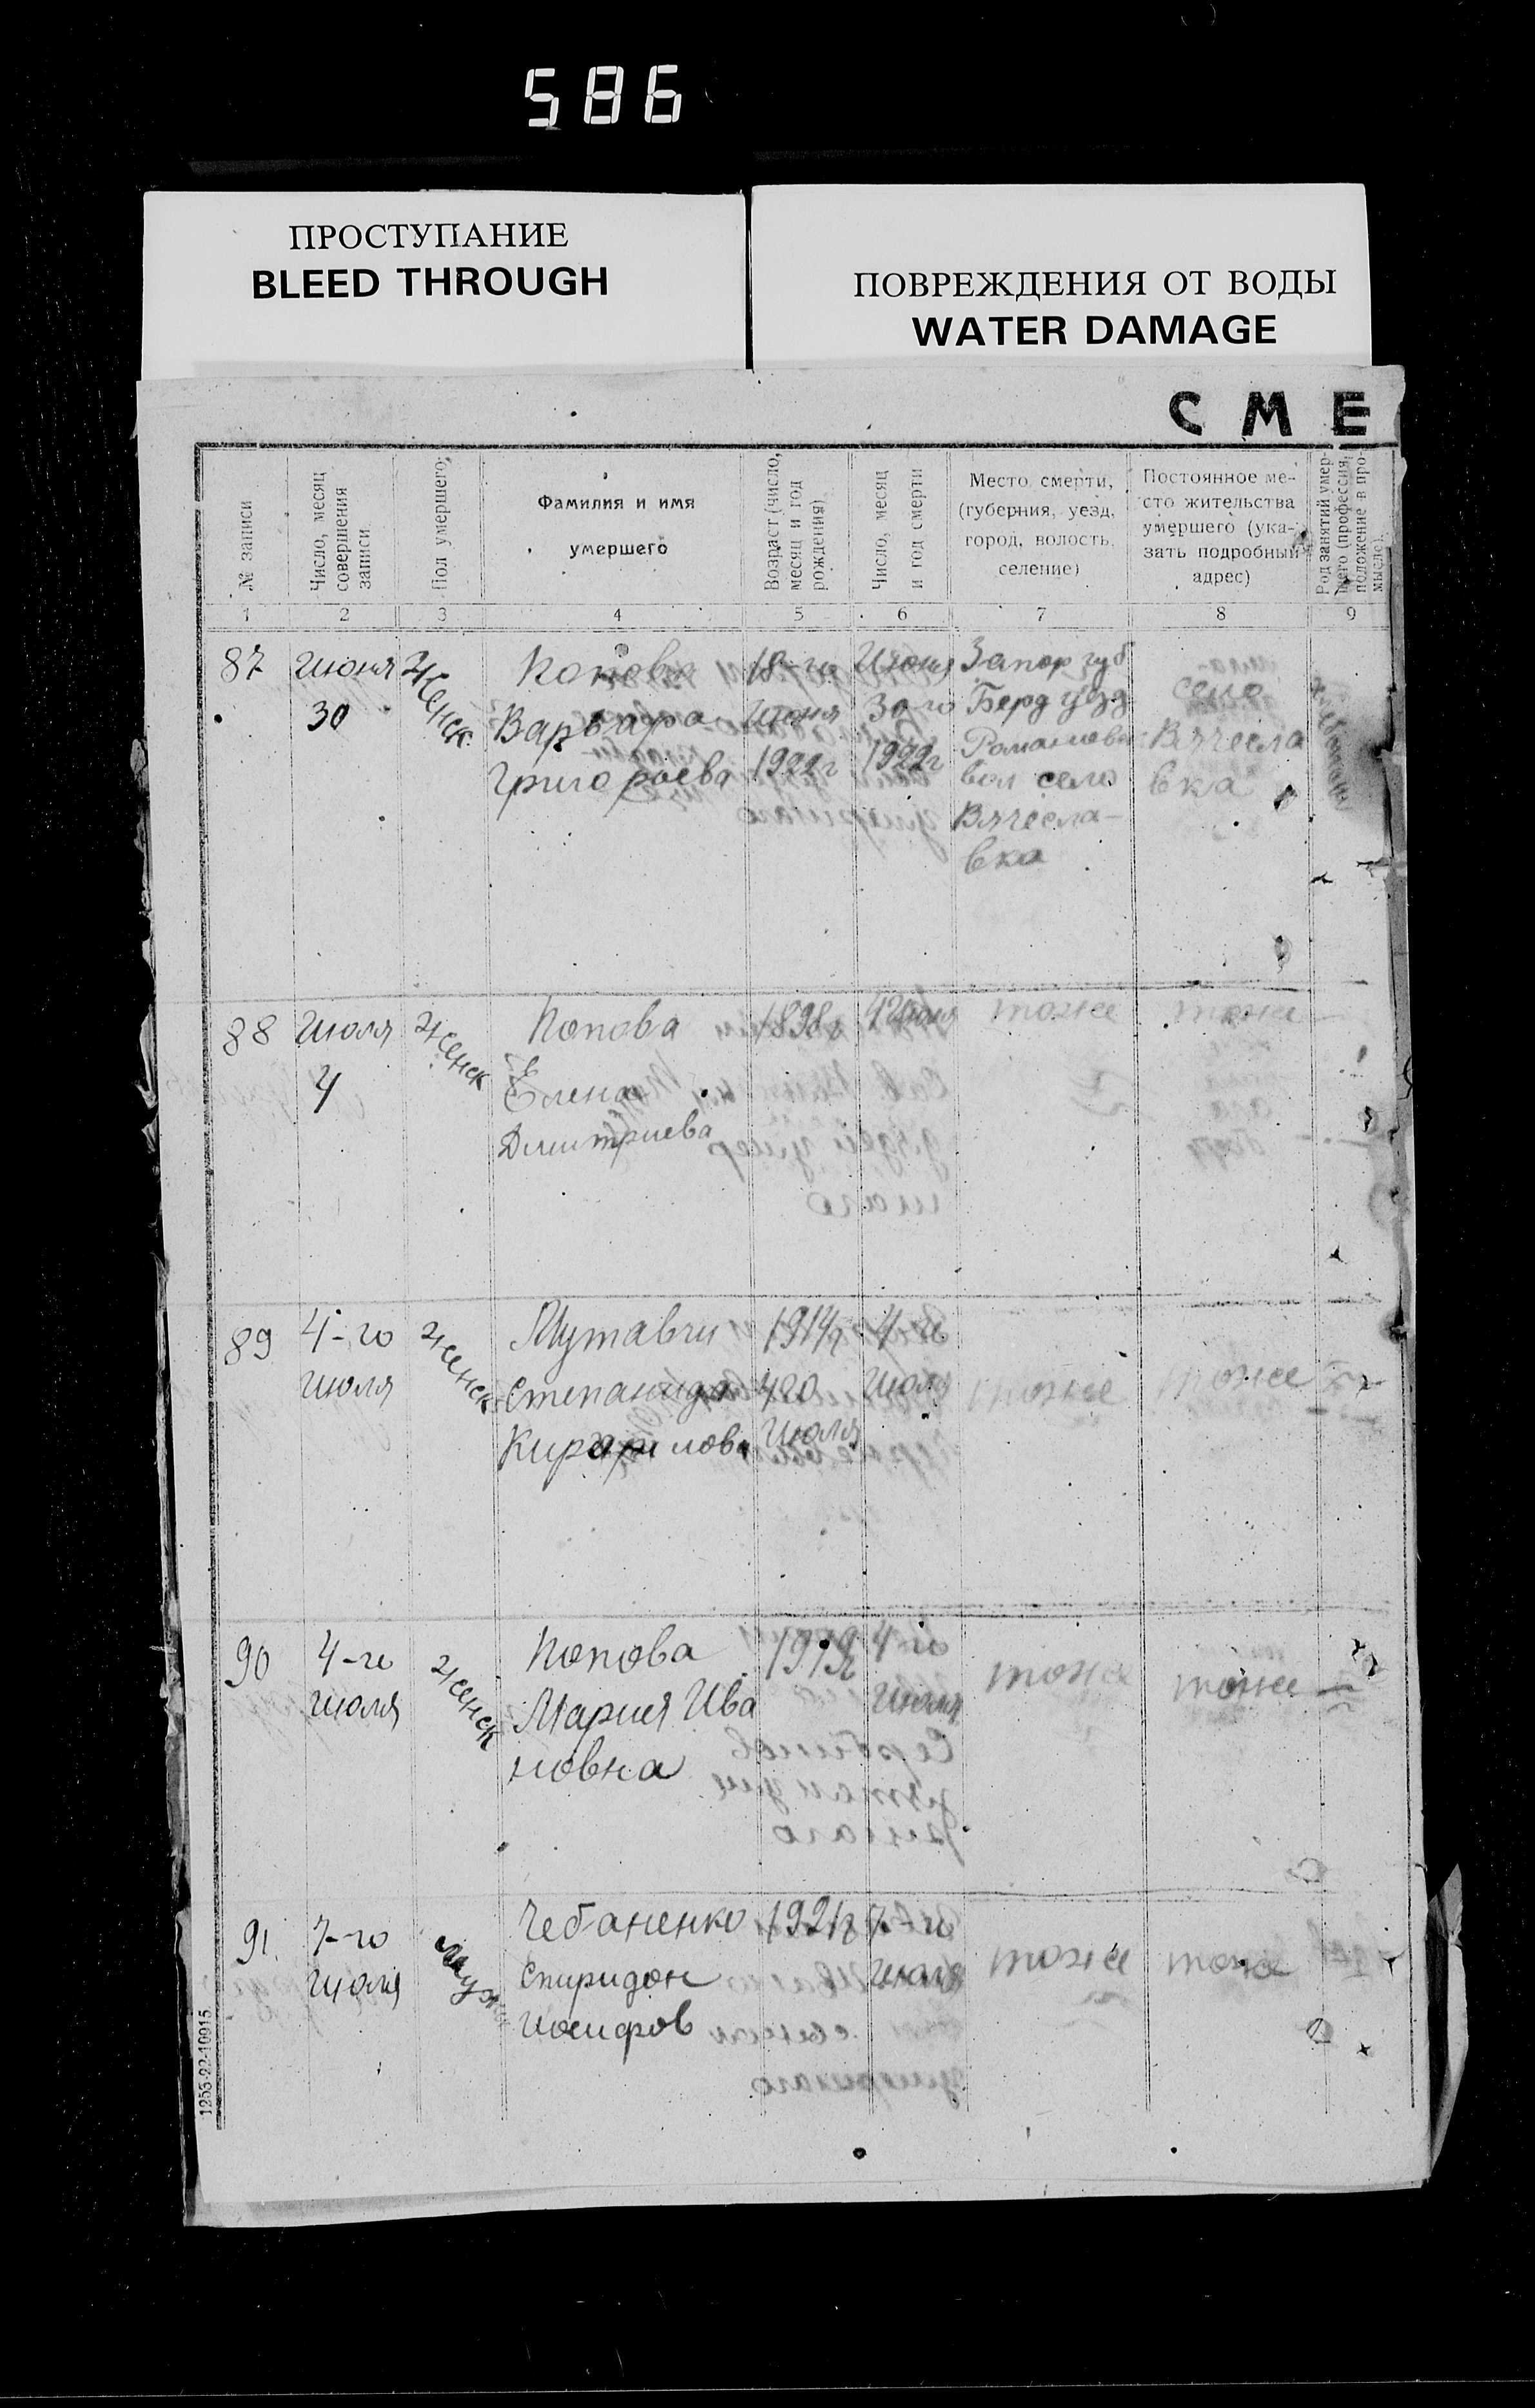 586
ПРОСТУПАНИЕ
BLEED THROUGH
ПОВРЕЖДЕНИЯ ОТ ВОДЫ
WATER DAMAGE
СМЕ
№ записи
Число, месяц
совершения
записи
Пол умершего
Фамилия и имя
умершего
Возраст (число,
месяц и год
рождения)
Число, месяц
и год смерти
Место смерти,
(губерния, уезд,
город, волость,
селение)
Постоянное ме-
сто жительства
умершего (ука-
зать подробный
адрес)
Род занятий умер-
шего (профессия,
положение в про-
мысле).
1 2 3 4 5 6 7 8 9
87
июня
30
Женск
Попова
Варвара
Григорьева
18-го
июня
1922г
Июня
30-го
1922г
Запор губ
Берд уезд
Романовск
вол село
Вячесла-
вка
село
Вячесла
вка
88
июля
4
Женск
Попова
Елена
Дмитриева
1898г
4 июля
тоже
тоже
89
4-го
июля
женск
Мутавчи
Степанида
1914г
4го
июля
4-го
июля
тоже
тоже
90
4-го
июля
женск
Попова
Мария Ива
новна
1919г
4-го
июля
тоже
тоже
91.
7-го
июля
муж
Чебаненко
Спиридон
Иосифов
1921г
7-го
июля
тоже
тоже
1253-22-10915